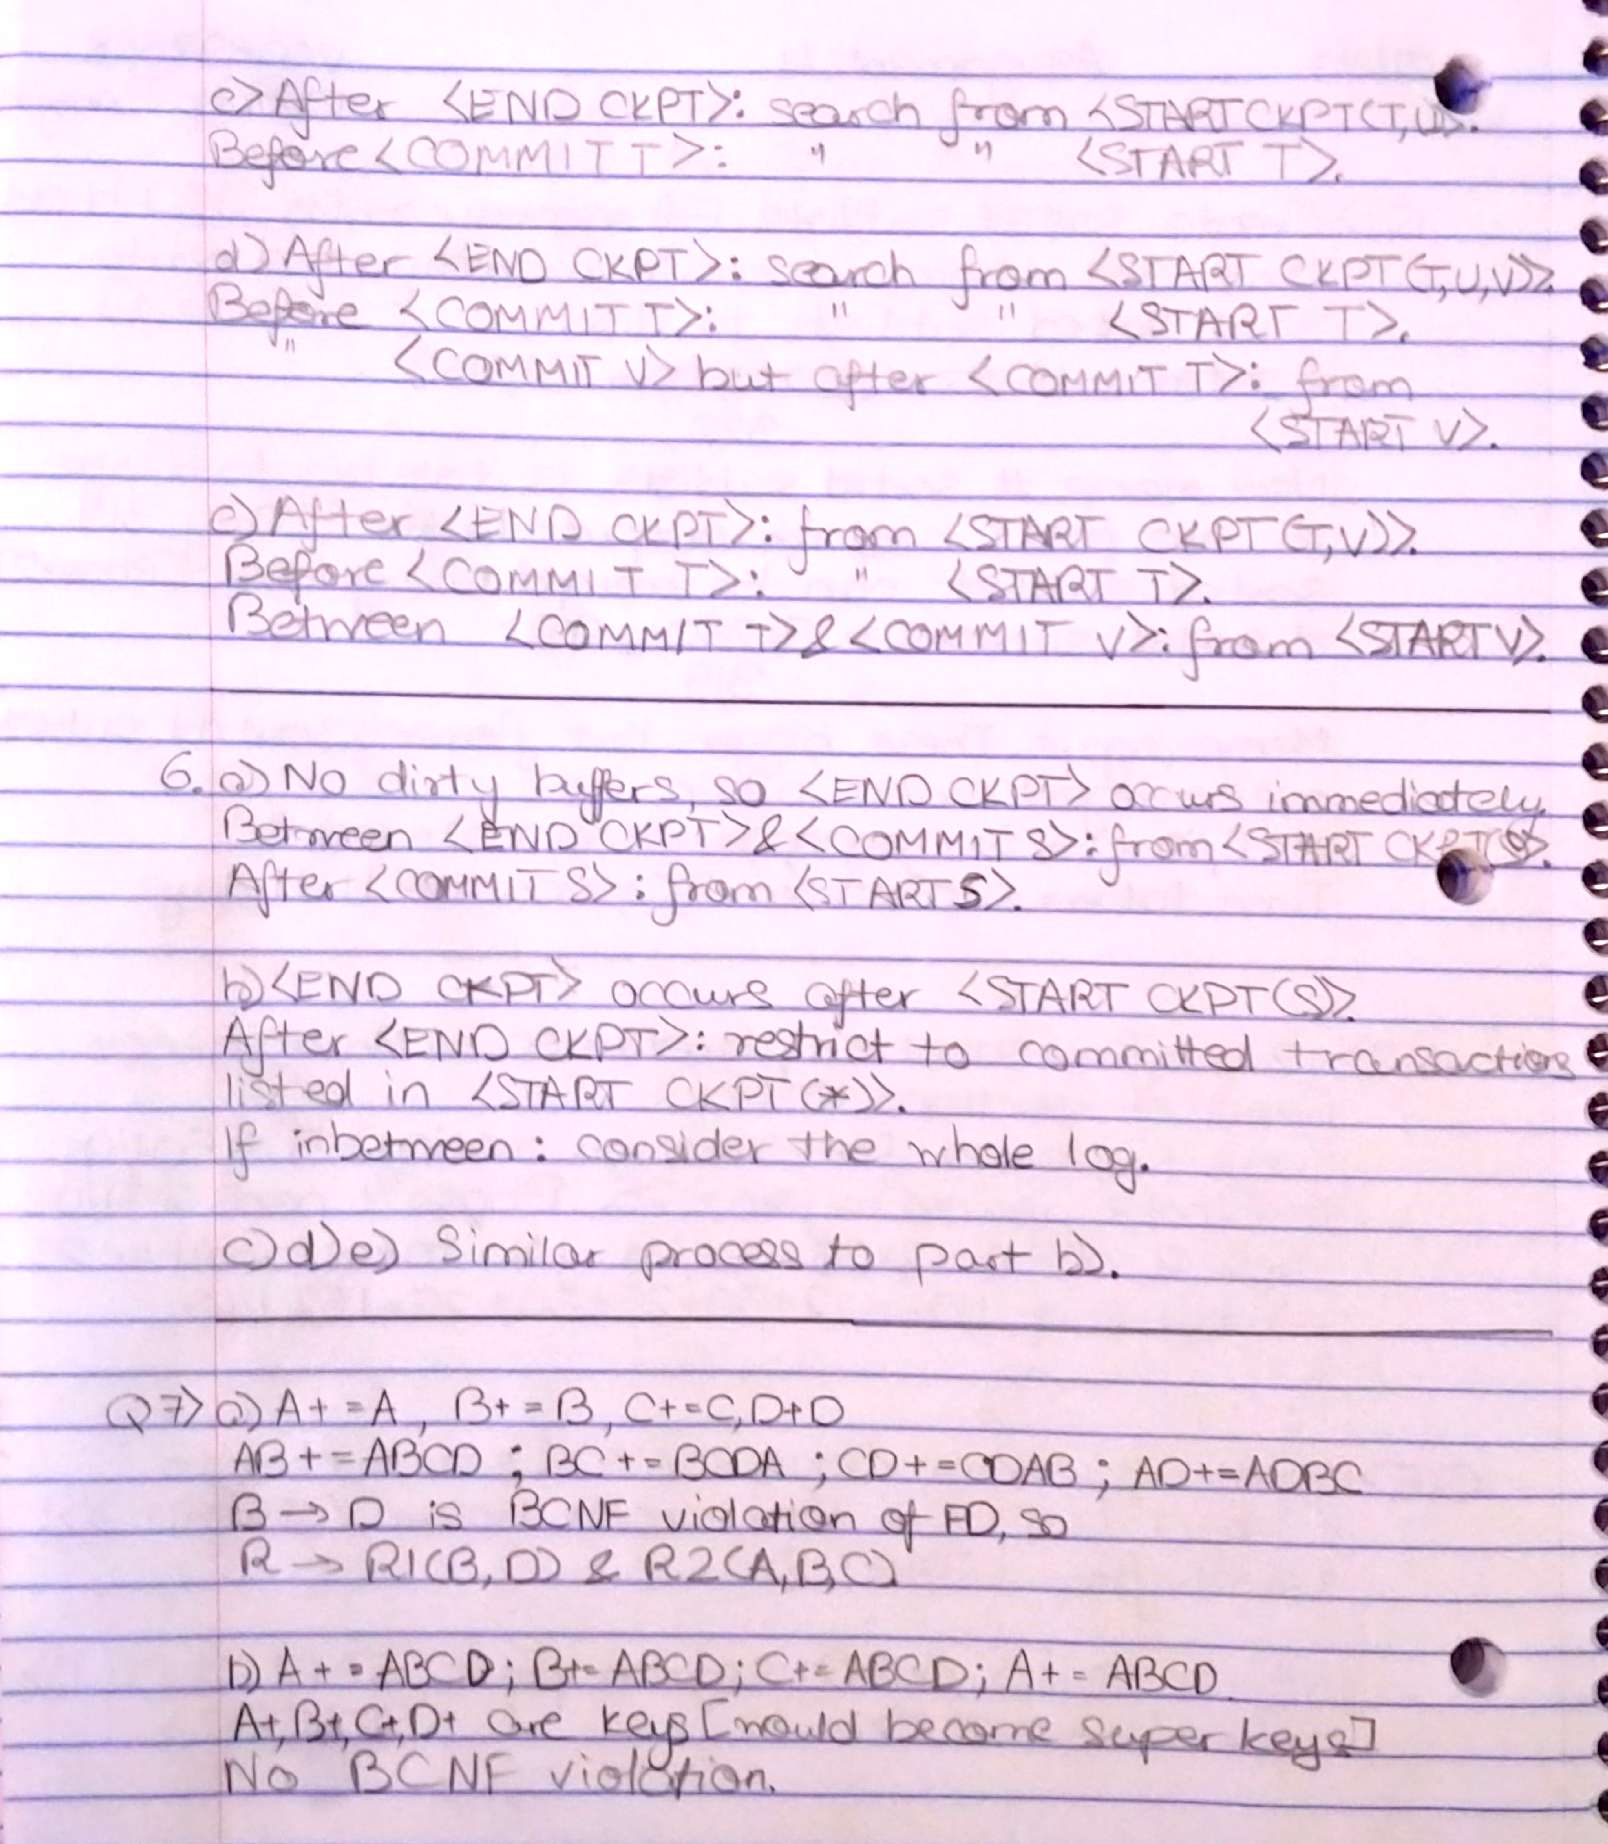 c) After <END CKPT>: search from <START CKPT(T,U)>.
Before <COMMIT T>: " " <START T>.
d) After <END CKPT>: search from <START CKPT(T,U,V)>.
Before <COMMIT T>: " " <START T>.
" <COMMIT V> but after <COMMIT T>: from
<START V>.
c) After <END CKPT>: from <START CKPT(T,V)>.
Before <COMMIT T>: " <START T>.
Between <COMMIT T> & <COMMIT V>: from <START V>.
6. a) No dirty buffers, so <END CKPT> occurs immediately.
Between <END CKPT> & <COMMIT S>: from <START CKPT(S)>.
After <COMMIT S>: from <START S>.
b) <END CKPT> occurs after <START CKPT(S)>.
After <END CKPT>: restrict to committed transactions
listed in <START CKPT(*)>.
If inbetween: consider the whole log.
c) d) e) Similar process to part b).
Q7) a) A+ = A, B+ = B, C+ = C, D+D
AB+ = ABCD ; BC+ = BCDA ; CD+ = CDAB ; AD+ = ADBC
B → D is BCNF violation of FD, so
R → R1(B,D) & R2(A,B,C)
b) A+ = ABCD; B+ = ABCD; C+ = ABCD; A+ = ABCD
A+, B+, C+, D+ are keys [would become super keys]
No BCNF violation.